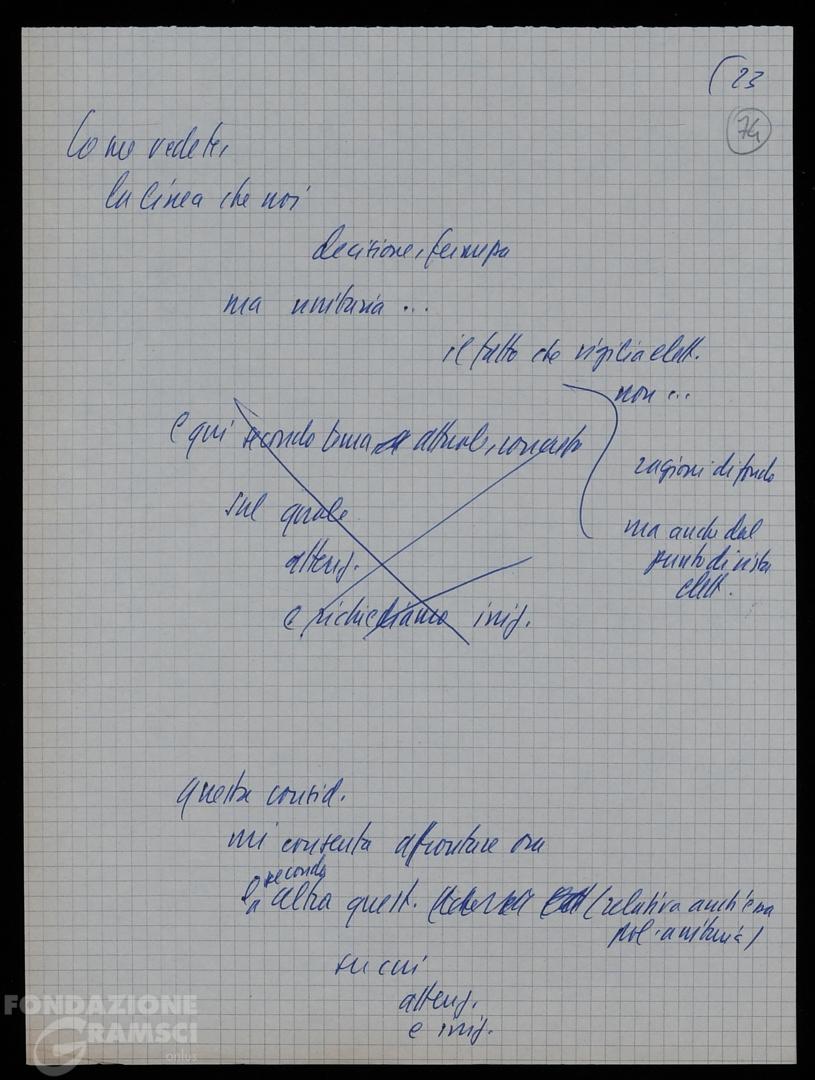 (23
74
Come vedete,
la linea che noi
decisione, fermezza
ma unitaria ...
il fatto che vigilia elett.
non ...
e qui secondo tema attuale, concreto
ragioni di fondo
sul quale
ma anche dal
punto di vista
elett.
attenz.
e richiediamo iniz.
questa consid.
mi consenta affrontare ora
seconda
altra quest. (relativa anch'essa
pol. unitaria)
su cui
attenz.
e iniz.
FONDAZIONE
GRAMSCI
onlus